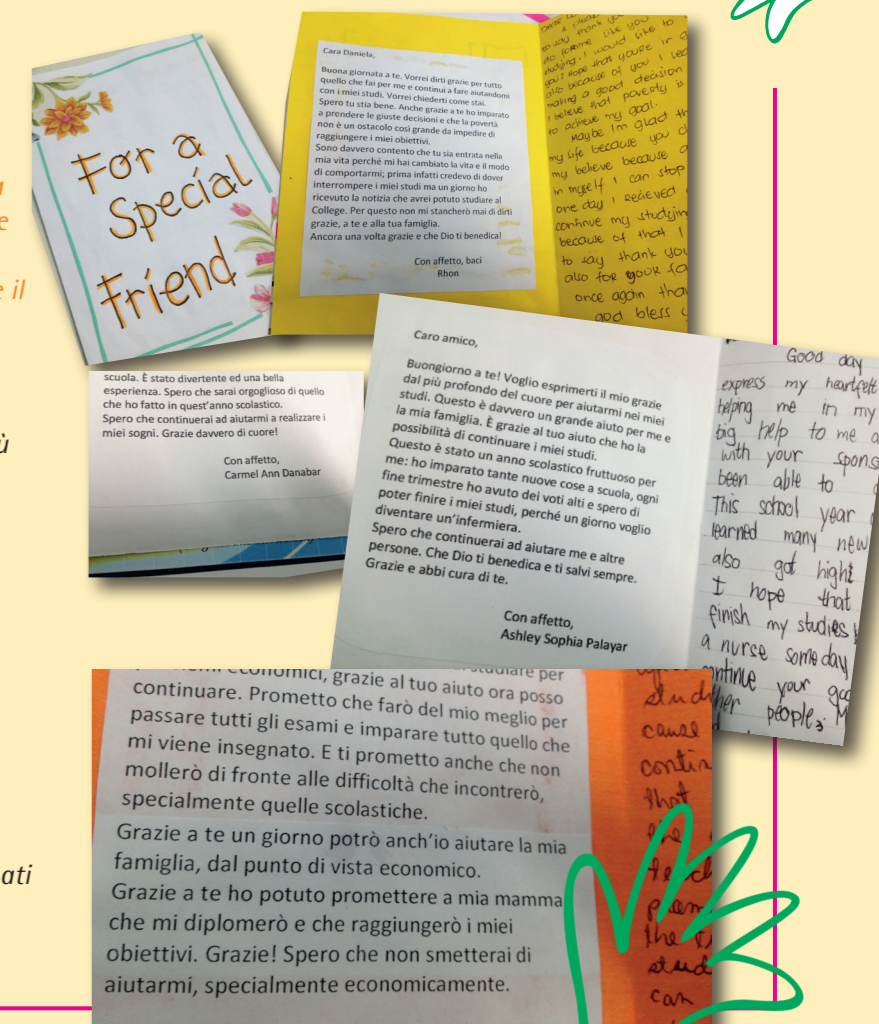 For a
Special
Friend
Cara Daniela,
Buona giornata a te. Vorrei dirti grazie per tutto
quello che fai per me e continui a fare aiutandomi
con i miei studi. Vorrei chiederti come stai.
Spero tu stia bene. Anche grazie a te ho imparato
a prendere le giuste decisioni e che la povertà
non è un ostacolo così grande da impedire di
raggiungere i miei obiettivi.
Sono davvero contento che tu sia entrata nella
mia vita perché mi hai cambiato la vita e il modo
di comportarmi; prima infatti credevo di dover
interrompere i miei studi ma un giorno ho
ricevuto la notizia che avrei potuto studiare al
College. Per questo non mi stancherò mai di dirti
grazie, a te e alla tua famiglia.
Ancora una volta grazie e che Dio ti benedica!
Con affetto, baci
Rhon
to say thank you
do forme like you
studying. I would like to
you? Hope that youre in g
also because of you I lea
making a good decision
I believe that poverty is
to achieve my goal.
Maybe Im glad th
my life because you c
my believe because
in myself I can stop
one day I recieved
continue my studyin
because of that I
to say thank you
also for your fa
once again than
god bless y
e il
scuola. È stato divertente ed una bella
esperienza. Spero che sarai orgoglioso di quello
che ho fatto in quest'anno scolastico.
Spero che continuerai ad aiutarmi a realizzare i
miei sogni. Grazie davvero di cuore!
Con affetto,
Carmel Ann Danabar
ù
Caro amico,
Buongiorno a te! Voglio esprimerti il mio grazie
dal più profondo del cuore per aiutarmi nei miei
studi. Questo è davvero un grande aiuto per me e
la mia famiglia. È grazie al tuo aiuto che ho la
possibilità di continuare i miei studi.
Questo è stato un anno scolastico fruttuoso per
me: ho imparato tante nuove cose a scuola, ogni
fine trimestre ho avuto dei voti alti e spero di
poter finire i miei studi, perché un giorno voglio
diventare un'infermiera.
Spero che continuerai ad aiutare me e altre
persone. Che Dio ti benedica e ti salvi sempre.
Grazie e abbi cura di te.
Con affetto,
Ashley Sophia Palayar
Good day
express my heartfelt
helping me in my
big help to me a
with your spons
been able to
This school year
learned many new
also got hight
I hope that
finish my studies
a nurse someday
ntinue your goo
ther people, M
economici, grazie al tuo aiuto ora posso
continuare. Prometto che farò del mio meglio per
passare tutti gli esami e imparare tutto quello che
mi viene insegnato. E ti prometto anche che non
mollerò di fronte alle difficoltà che incontrerò,
specialmente quelle scolastiche.
Grazie a te un giorno potrò anch'io aiutare la mia
famiglia, dal punto di vista economico.
Grazie a te ho potuto promettere a mia mamma
che mi diplomerò e che raggiungerò i miei
obiettivi. Grazie! Spero che non smetterai di
aiutarmi, specialmente economicamente.
studi
cause
contin
that
the
teach
the
stud
can
ati